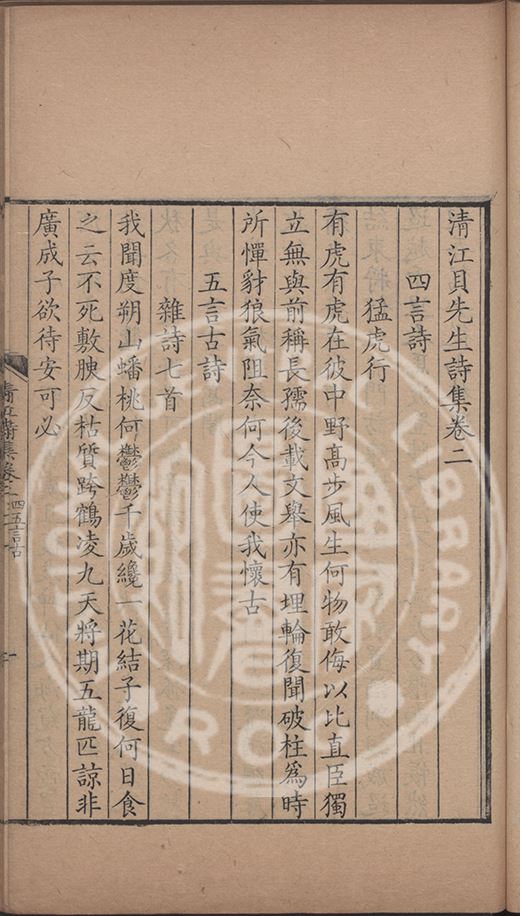 清江貝先生詩集卷二
四言詩
猛虎行
有虎有虎在彼中野高步風生何物敢侮以比直臣獨
立無與前稱長孺後載文舉亦有埋輪復聞破柱爲時
所憚豺狼氣阻奈何今人使我懷古
五言古詩
雜詩七首
我聞度朔山蟠桃何鬱鬱千歲纔一花結子復何日食
之云不死敷腴反枯質跨鶴凌九天將期五龍匹諒非
廣成子欲待安可必
四五言古
一